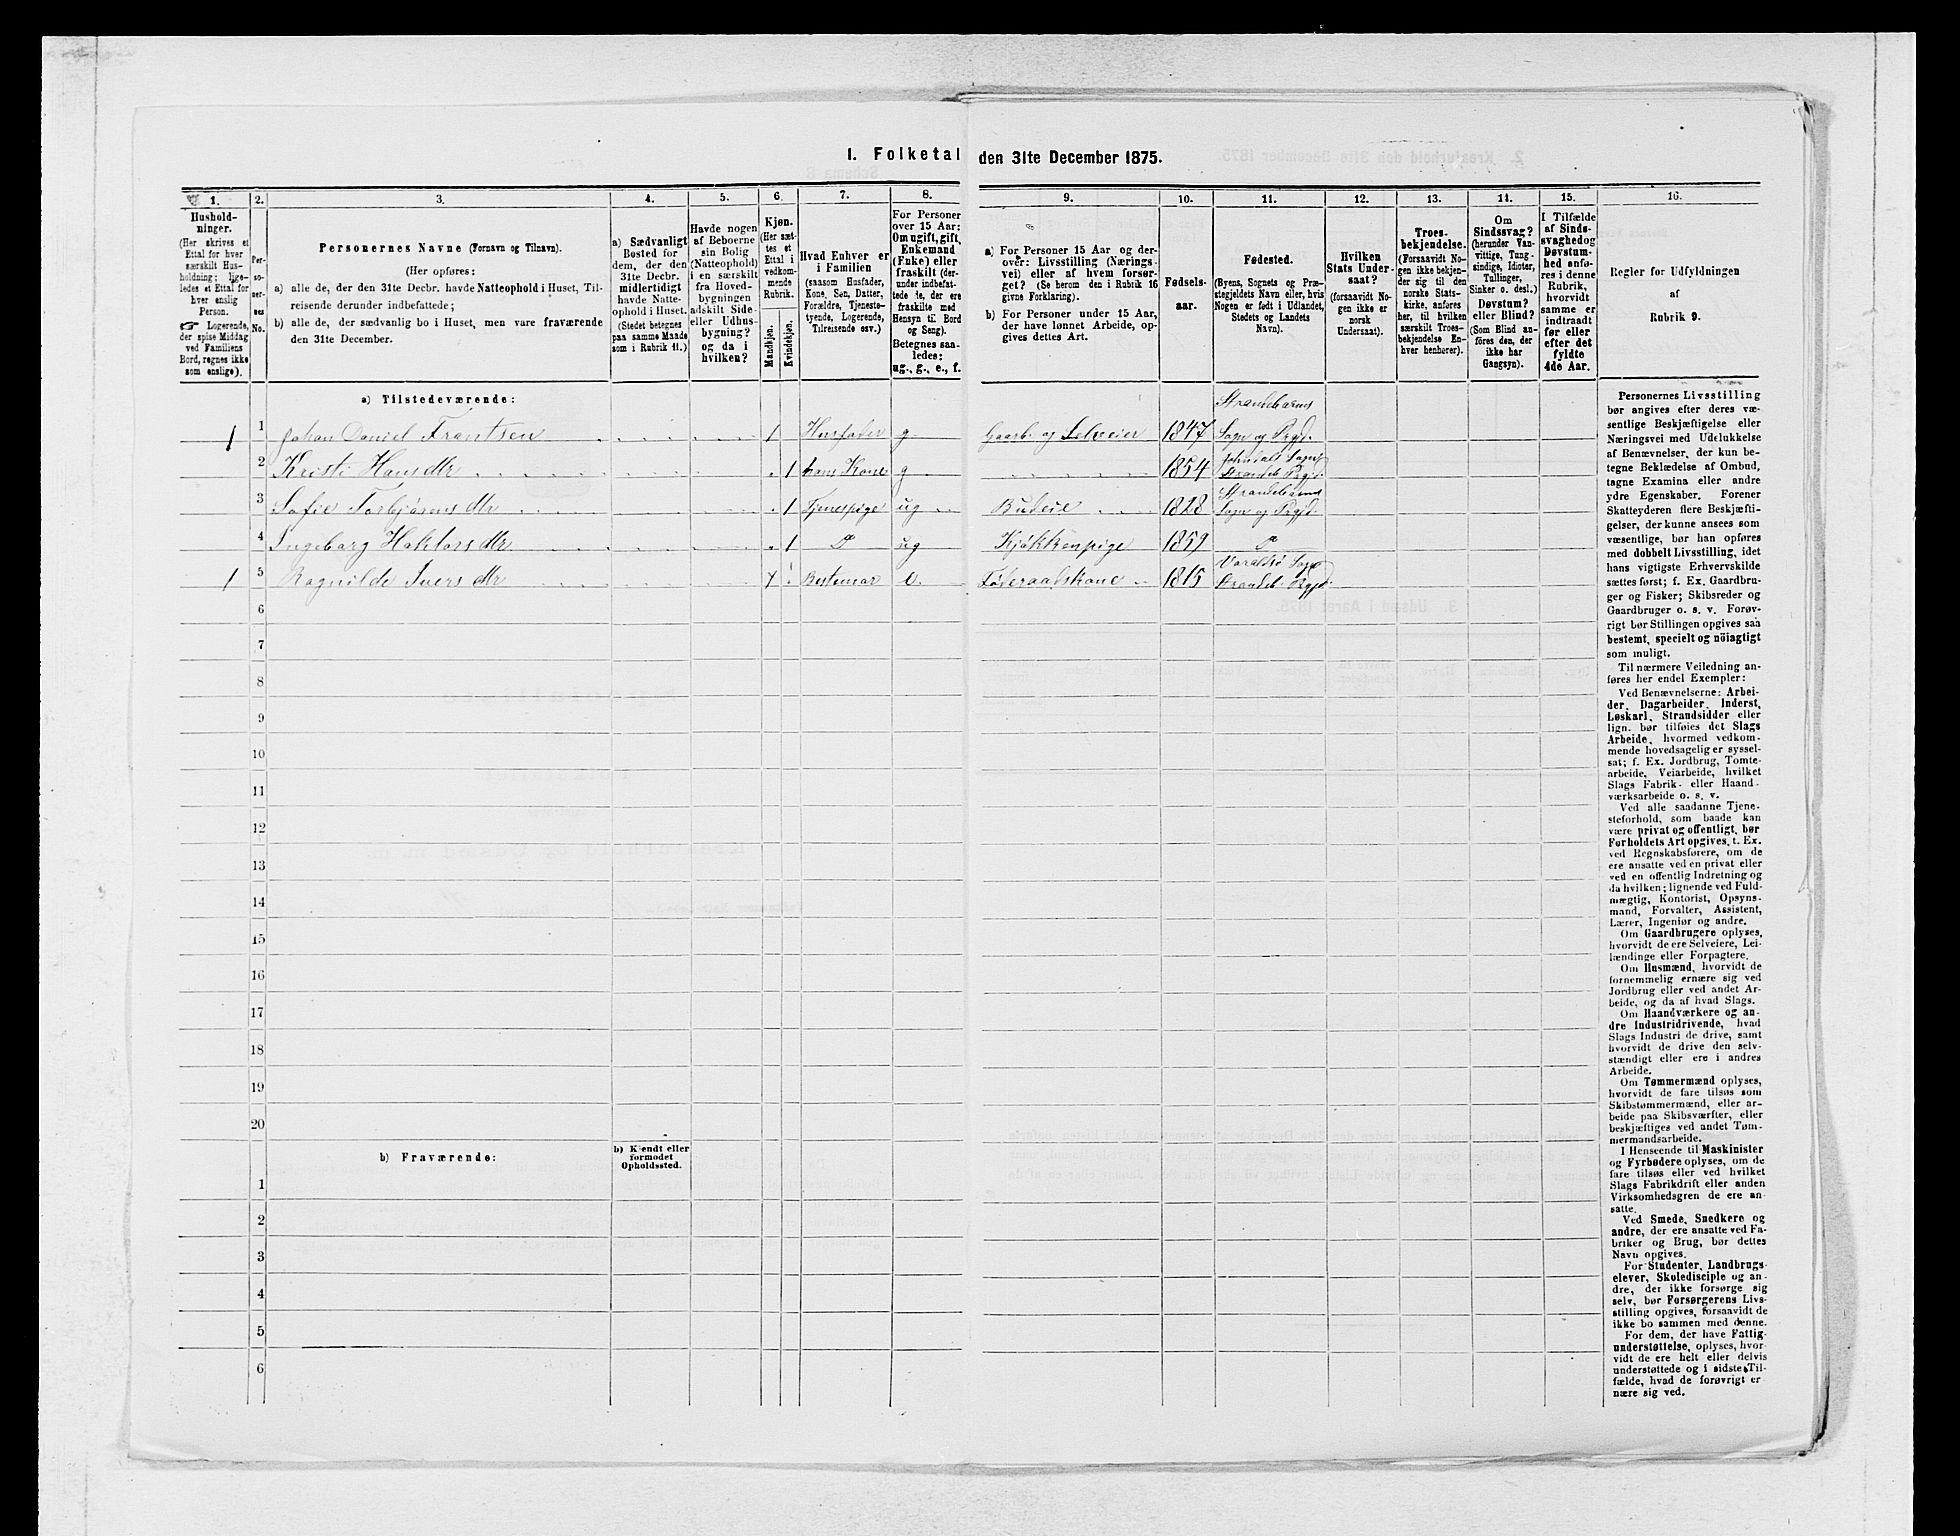 I. Folketal den 31te December 1875.
1. 2. 3. 4. 5. 6. 7. 8. 9. 10. 11. 12. 13. 14. 15. 16.
Hushold-
ninger.
(Her skrives et
Ettal for hver
særskilt Hus-
holdning; lige-
ledes et Ettal for
hver enslig
Person.
☞ Logerende,
der spise Middag
ved Familiens
Bord, regnes ikke
som enslige).
Per-
so-
ner-
nes
No.
Personernes Navne (Fornavn og Tilnavn).
(Her opføres:
a) alle de, der den 31te Decbr. havde Natteophold i Huset, Til-
reisende derunder indbefattede;
b) alle de, der sædvanlig bo i Huset, men vare fraværende
den 31te December.
a) Sædvanligt
Bosted for
dem, der den
31te Decbr.
midlertidigt
havde Natte-
ophold i Huset.
(Stedet betegnes
paa samme Maade
som i Rubrik 11.)
Havde nogen
af Beboerne
sin Bolig
(Natteophold)
i en særskilt
fra Hoved-
bygningen
adskilt Side-
eller Udhus-
bygning?
og da i
hvilken?
Kjøn.
(Her sæt-
tes et
Ettal i
vedkom-
mende
Rubrik.
Mandkjøn.
Kvindekjøn.
Hvad Enhver er
i Familien
(saasom Husfader,
Kone, Søn, Datter,
Forældre, Tjeneste-
tyende, Logerende,
Tilreisende osv.)
For Personer
over 15 Aar:
Om ugift, gift,
Enkemand
(Enke) eller
fraskilt (der-
under indbefat-
tede de, der ere
fraskilte med
Hensyn til Bord
og Seng).
Betegnes saa-
ledes:
ug., g., e., f.
a) For Personer 15 Aar og der-
over: Livsstilling (Nærings-
vei) eller af hvem forsør-
get? (Se herom den i Rubrik 16
givne Forklaring).
b) For Personer under 15 Aar,
der have lønnet Arbeide, op-
gives dettes Art.
Fødsels-
aar.
Fødested.
(Byens, Sognets og Præ-
stegjeldets Navn eller, hvis
Nogen er født i Udlandet,
Stedets og Landets
Navn).
Hvilken
Stats Under-
saat?
(forsaavidt No-
gen ikke er
norsk
Undersaat).
Troes-
bekjendelse.
(Forsaavidt No-
gen ikke bekjen-
der sig til den
norske Stats-
kirke, anføres
her, til hvilken
særskilt Troes-
bekjendelse En-
hver henhører).
Om
Sindssvag?
(herunder Van-
vittige, Tung-
sindige, Idioter,
Tullinger,
Sinker o. desl.)
Døvstum?
eller Blind?
(Som Blind an-
føres den, der
ikke har
Gangsyn).
I Tilfælde
af Sinds-
svaghed og
Døvstum-
hed anfø-
res i denne
Rubrik,
hvorvidt
samme er
indtraadt
før eller
efter det
fyldte
4de Aar.
Regler for Udfyldningen
af
Rubrik 9.
a) Tilstedeværende:
1 1 Johan Daniel Frantsen 1 Husfader g Gaarb. og Selveier 1847 Strandebarms Sogn og Prgjd.
2 Kristi Hans Dtr 1 hans Kone g 1854 Jondals Sogn Strandeb. Prgjd.
3 Sofie Torbjörens Dtr 1 Tjenespige ug Budeie 1828 Strandebarms Sogn og Prgjd.
4 Ingeborg Haktors Dtr 1 Do ug Kjökkenpige 1859 Do
1 5 Ragnilde Ivers Dtr 1 Bestemor e. Föderaadskone 1815 Varaldsö Sogn Strandeb. Prgjd.
6
7
8
9
10
11
12
13
14
15
16
17
18
19
20
b) Fraværende:
b) Kjendt eller
formodet
Opholdssted.
1
2
3
4
5
6
Personernes Livsstilling
bør angives efter deres væ-
sentlige Beskjæftigelse eller
Næringsvei med Udelukkelse
af Benævnelser, der kun be-
tegne Beklædelse af Ombud,
tagne Examina eller andre
ydre Egenskaber. Forener
Skatteyderen flere Beskjæfti-
gelser, der kunne ansees som
væsentlige, bør han opføres
med dobbelt Livsstilling, idet
hans vigtigste Erhvervskilde
sættes først; f. Ex. Gaardbru-
ger og Fisker; Skibsreder og
Gaardbruger o. s. v. Forøv-
rigt bør Stillingen opgives saa
bestemt, specielt og nöiagtigt
som muligt.
Til nærmere Veiledning an-
føres her endel Exempler:
Ved Benævnelserne: Arbei-
der, Dagarbeider, Inderst,
Løskarl, Strandsidder eller
lign. bør tilføies det Slags
Arbeide, hvormed vedkom-
mende hovedsagelig er syssel-
sat; f. Ex. Jordbrug, Tomte-
arbeide, Veiarbeide, hvilket
Slags Fabrik- eller Haand-
værksarbeide o. s. v.
Ved alle saadanne Tjene-
steforhold, som baade kan
være privat og offentligt, bør
Forholdets Art opgives, t. Ex.
ved Regnskabsførere, om de
ere ansatte ved en privat eller
ved en offentlig Indretning og
da hvilken; lignende ved Fuld-
mægtig, Kontorist, Opsyns-
mand, Forvalter, Assistent,
Lærer, Ingeniør og andre.
Om Gaardbrugere oplyses,
hvorvidt de ere Selveiere, Lei-
lændinge eller Forpagtere.
Om Husmænd, hvorvidt de
fornemmelig ernære sig ved
Jordbrug eller ved andet Ar-
beide, og da af hvad Slags.
Om Haandværkere og an-
dre Industridrivende, hvad
Slags Industri de drive, samt
hvorvidt de drive den selv-
stændigt eller ere i andres
Arbeide.
Om Tømmermænd oplyses,
hvorvidt de fare tilsøs som
Skibstømmermænd, eller ar-
beide paa Skibsværfter, eller
beskjæftiges ved andet Tøm-
mermandsarbeide.
I Henseende til Maskinister
og Fyrbødere oplyses, om de
fare tilsøs eller ved hvilket
Slags Fabrikdrift eller anden
Virksomhedsgren de ere an-
satte.
Ved Smede, Snedkere og
andre, der ere ansatte ved Fa-
briker og Brug, bør dettes
Navn opgives.
For Studenter, Landbrugs-
elever, Skoledisciple og an-
dre, der ikke forsørge sig
selv, bør Forsørgerens Livs-
stilling opgives, forsaavidt de
ikke bo sammen med denne.
For dem, der have Fattig-
understøttelse, oplyses, hvor-
vidt de ere helt eller delvis
understøttede og i sidste Til-
fælde, hvad de forøvrigt er-
nære sig ved.